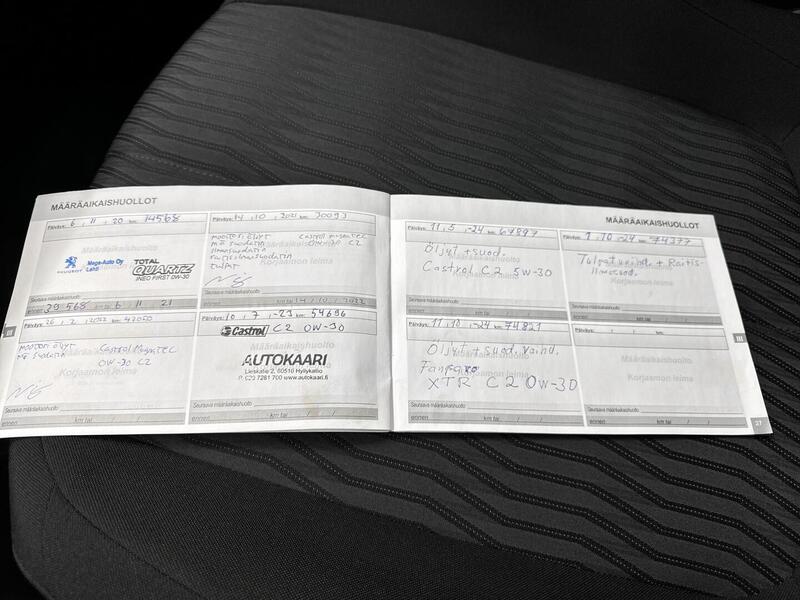 MÄÄRÄAIKAISHUOLLOT
Päiväys: 6 / 11 - 20 km: 14568
Määräaikaishuolto
PEUGEOT
Mega-Auto Oy
Lahti
TOTAL
QUARTZ
INEO FIRST 0W-30
Seuraava määräaikaishuolto
ennen 39 568 km tai 6 / 11 / 21
Päiväys: 14 / 10 / 2021 km: 30093
Moottori öljyt Castrol Magnatec
MÖ Suodatin 0W-30 C2
Ilmansuodatin
raitisilmasuodatin
tulpat
Seuraava määräaikaishuolto
ennen km tai 14 / 10 / 2022
Päiväys: 26 / 2 / 2022 km: 42050
Määräaikaishuolto
Korjaamon leima
Moottori öljyt Castrol Magnatec
MÖ Suodatin 0W-30 C2
Seuraava määräaikaishuolto
ennen km tai / /
Päiväys: 10 / 7 - 23 km: 54696
Castrol C2 0W-30
Määräaikaishuolto
AUTOKAARI
60510 Hyllykallio
www.autokaari.fi
Seuraava määräaikaishuolto
ennen km tai / /
III
MÄÄRÄAIKAISHUOLLOT
Päiväys: 11 / 5 - 24 km: 67897
Määräaikaishuolto
Korjaamon leima
Öljyt + suod.
Castrol C2 5W-30
Seuraava määräaikaishuolto
ennen km tai / /
Päiväys: 1 / 10 - 24 km: 74377
Määräaikaishuolto
Korjaamon leima
Tulpat vaihd. + Raitis-
ilmasuod.
Seuraava määräaikaishuolto
ennen km tai / /
Päiväys: 11 / 10 - 24 km: 74821
Määräaikaishuolto
Korjaamon leima
Öljyt + suod. vaihd.
Fanfaro
XTR C2 0W-30
Seuraava määräaikaishuolto
ennen km tai / /
Päiväys: / / km:
Määräaikaishuolto
Korjaamon leima
Seuraava määräaikaishuolto
ennen km tai / /
III
27